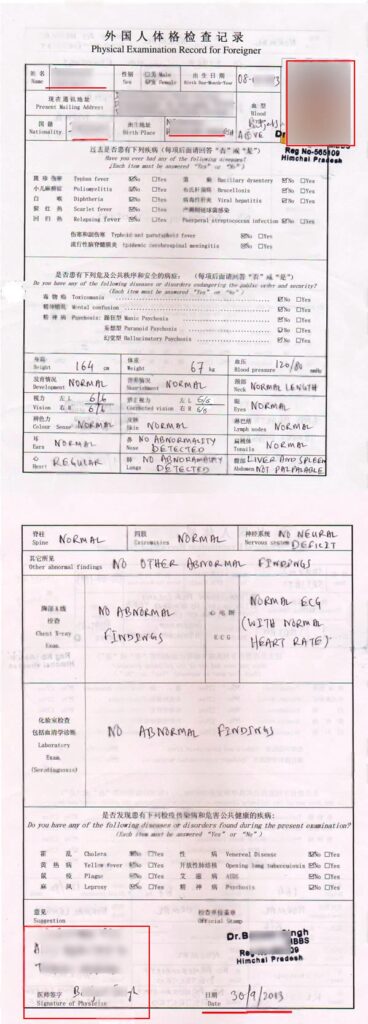 外国人体格检查记录
Physical Examination Record for Foreigner
姓名 Name
性别 Sex □男 Male 女 Female
出生日期 Birth Day-Month-Year 08-
现在通讯地址 Present Mailing Address
血型 Blood
国籍 Nationality
出生地址 Birth Place
Reg No-565809
Himchal Pradesh
过去是否患有下列疾病（每项后面请回答“否”或“是”）
Have you ever had any of the following diseases?
(Each item must be answered "Yes" or "No")
斑疹伤寒 Typhus fever ☑No □Yes 菌痢 Bacillary dysentery ☑No □Yes
小儿麻痹症 Poliomyelitis ☑No □Yes 布氏杆菌病 Brucellosis ☑No □Yes
白喉 Diphtheria ☑No □Yes 病毒性肝炎 Viral hepatitis ☑No □Yes
猩红热 Scarlet fever ☑No □Yes 产褥期链球菌感染
回归热 Relapsing fever ☑No □Yes Puerperal streptococcus infection ☑No □Yes
伤寒和副伤寒 Typhoid and paratyphoid fever ☑No □Yes
流行性脑脊髓膜炎 Epidemic cerebrospinal meningitis ☑No □Yes
是否患有下列危及公共秩序和安全的病症：（每项后面请回答“否”或“是”）
Do you have any of the following diseases or disorders endangering the public order and security?
(Each item must be answered "Yes" or "No")
毒物瘾 Toxicomania ☑No □Yes
精神错乱 Mental confusion ☑No □Yes
精神病 Psychosis: 躁狂型 Manic Psychosis ☑No □Yes
妄想型 Paranoid Psychosis ☑No □Yes
幻觉型 Hallucinatory Psychosis ☑No □Yes
身高 Height 164 cm
体重 Weight 67 kg
血压 Blood pressure 120/80 mmHg
发育情况 Development NORMAL
营养情况 Nourishment NORMAL
颈部 Neck NORMAL LENGTH
视力 Vision 左 L 6/6 右 R 6/6
矫正视力 Corrected vision 左 L 6/6 右 R 6/6
眼 Eyes NORMAL
辨色力 Colour Sense NORMAL
皮肤 Skin NORMAL
淋巴结 Lymph nodes NORMAL
耳 Ears NORMAL
鼻 Nose NO ABNORMALITY DETECTED
扁桃体 Tonsils NORMAL
心 Heart REGULAR
肺 Lungs NO ABNORAMALITY DETECTED
腹部 Abdomen LIVER AND SPLEEN NOT PALPABLE
脊柱 Spine NORMAL
四肢 Extremities NORMAL
神经系统 Nervous system NO NEURAL DEFICIT
其它所见
Other abnormal findings NO OTHER ABNORMAL FINDINGS
胸部X线检查 Chest X-ray Exam. NO ABNORMAL FINDINGS
心电图 ECG NORMAL ECG (WITH NORMAL HEART RATE)
化验室检查 包括血清学诊断 Laboratory Exam. (Serodiagnosis) NO ABNORMAL FINDINGS
是否发现患有下列检疫传染病和危害公共健康的疾病：
Do you have any of the following diseases or disorders found during the present examination?
(Each item must be answered "Yes" or "No")
霍乱 Cholera ☑No □Yes 性病 Venereal Disease ☑No □Yes
黄热病 Yellow fever ☑No □Yes 开放性肺结核 Opening lung tuberculosis ☑No □Yes
鼠疫 Plague ☑No □Yes 艾滋病 AIDS ☑No □Yes
麻风 Leprosy ☑No □Yes 精神病 Psychosis ☑No □Yes
意见 Suggestion
检查单位盖章 Official Stamp
Singh
MBBS
Himchal Pradesh
医师签字 Signature of Physician
日期 Date 30/9/2013